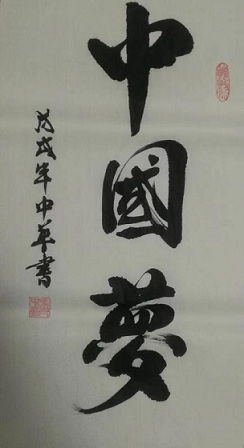 中國夢
戊戌年中華書